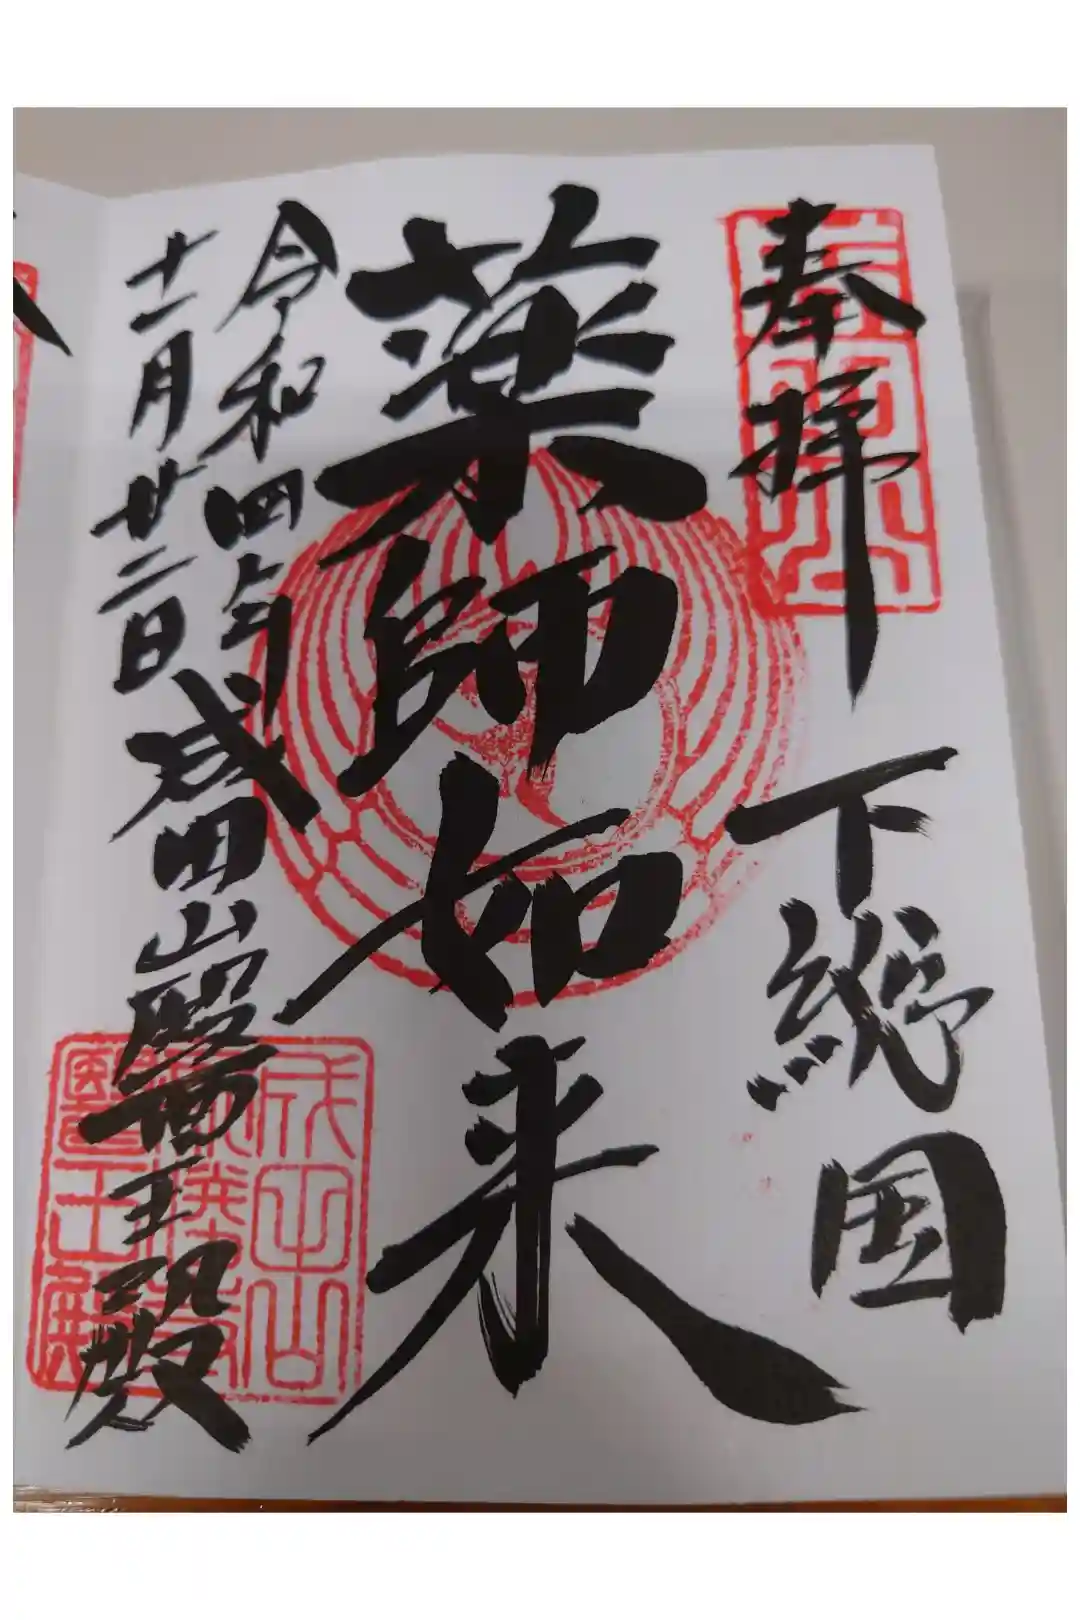 奉拝
下総国
薬師如来
令和四年
十一月廿二日
成田山醫王殿
成田山
醫王殿